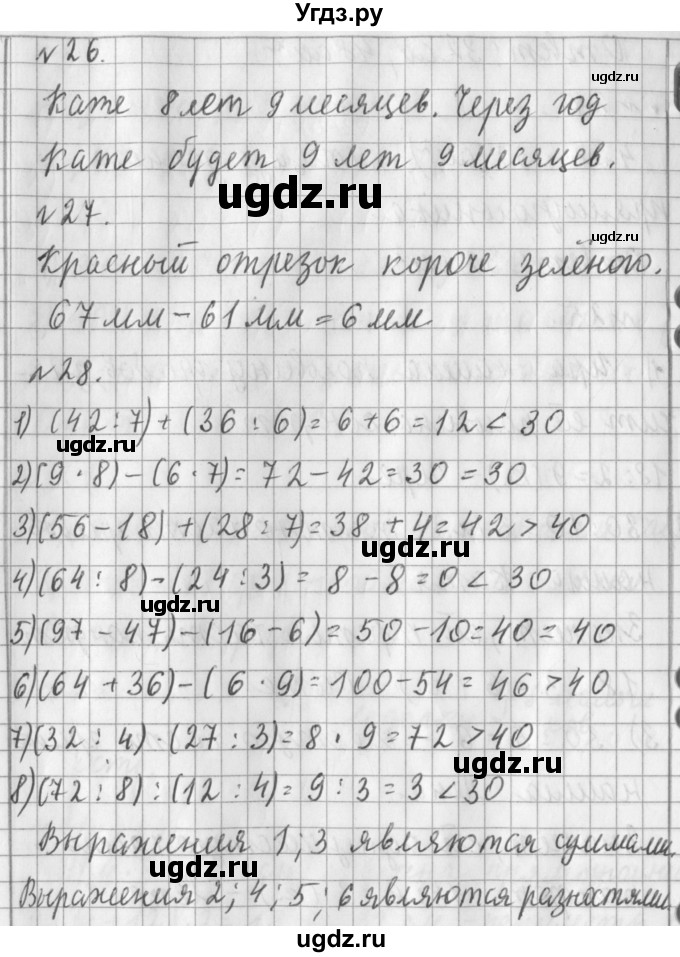 Угдз.ру
№26.
Кате 8 лет 9 месяцев. Через год
Кате будет 9 лет 9 месяцев.
№27.
Красный отрезок короче зелёного.
67 мм - 61 мм = 6 мм
№28.
1) (42 : 7) + (36 : 6) = 6 + 6 = 12 < 30
2) (9 · 8) - (6 · 7) = 72 - 42 = 30 = 30
3) (56 - 18) + (28 : 7) = 38 + 4 = 42 > 40
4) (64 : 8) - (24 : 3) = 8 - 8 = 0 < 30
5) (97 - 47) - (16 - 6) = 50 - 10 = 40 = 40
6) (64 + 36) - (6 · 9) = 100 - 54 = 46 > 40
7) (32 : 4) · (27 : 3) = 8 · 9 = 72 > 40
8) (72 : 8) : (12 : 4) = 9 : 3 = 3 < 30
Выражения 1; 3 являются суммами.
Выражения 2; 4; 5; 6 являются разностями.
ugdz.ru